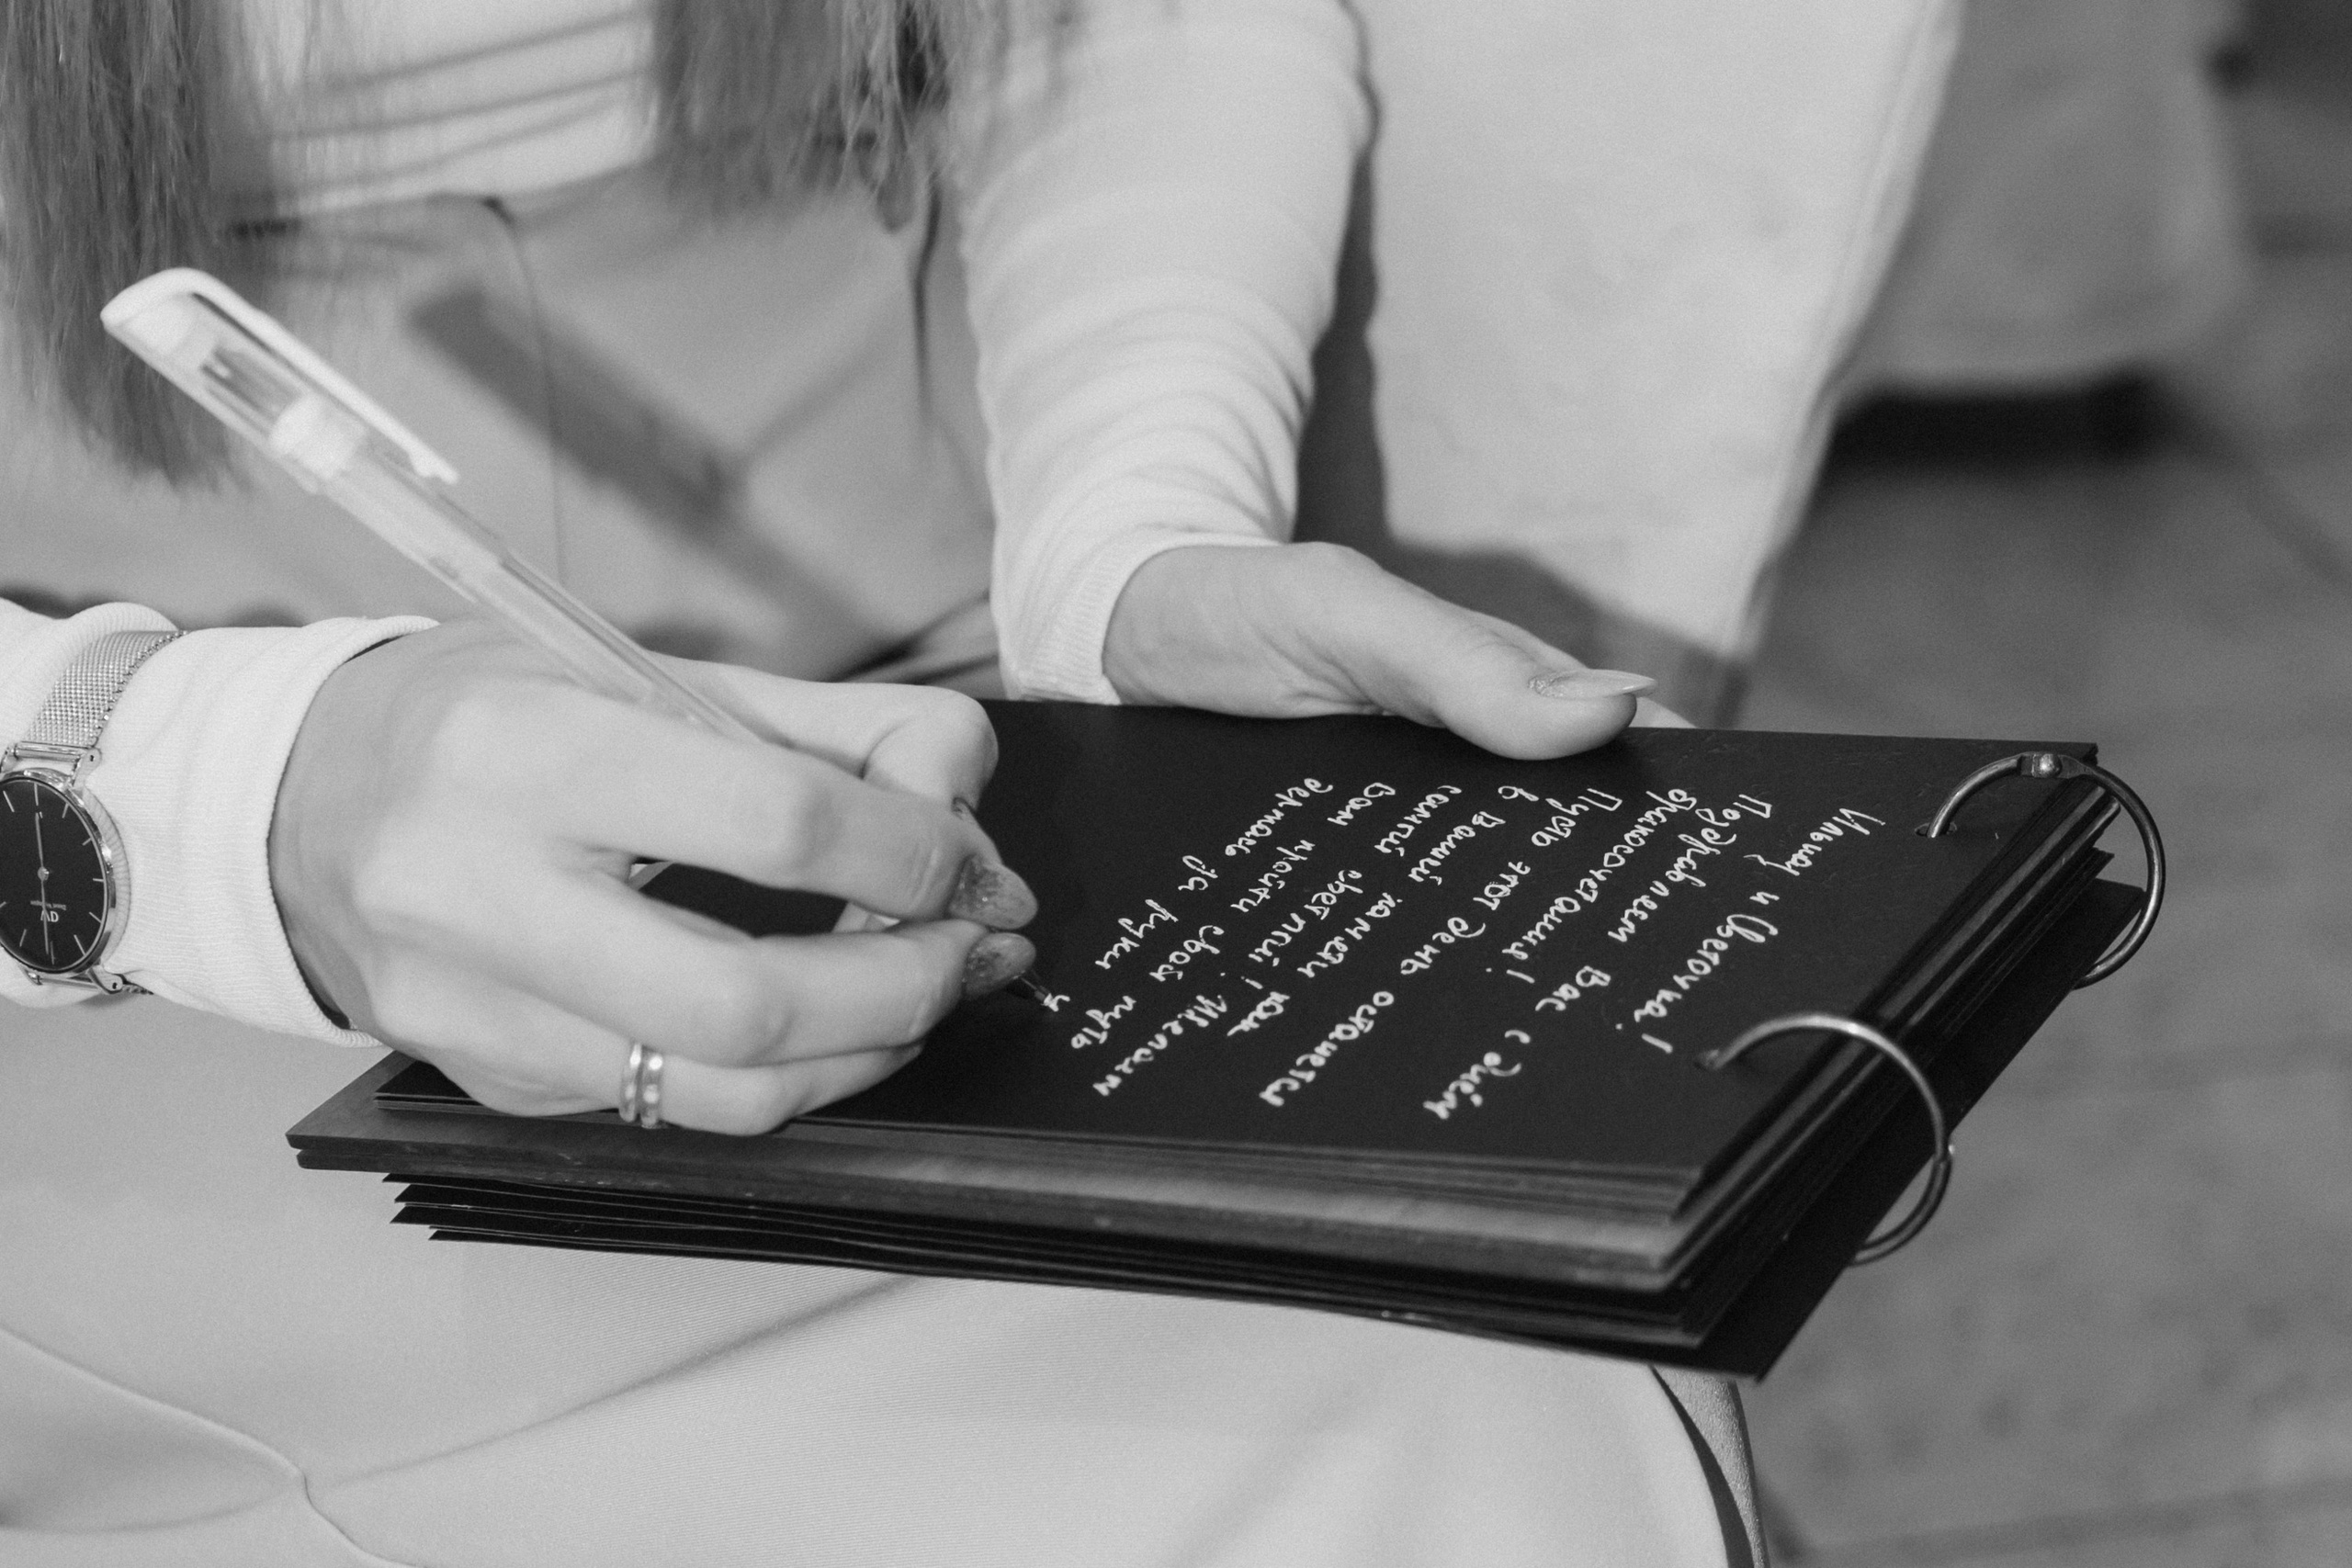 Ильшат и Светочка!
Поздравляем Вас с днём
бракосочетания!
Пусть этот день останется
в Вашей памяти как
самый светлый! Желаем
Вам пройти свой путь
держась за руки